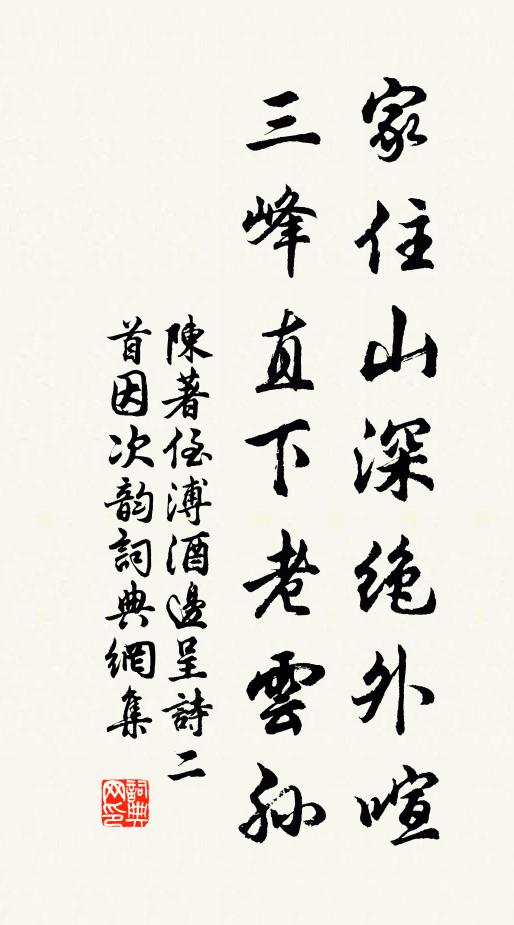 家住山深绝外喧
三峰直下老雲孙
陳著侄溥酒邊呈詩二
首因次韵詞典網集
詞典
网印